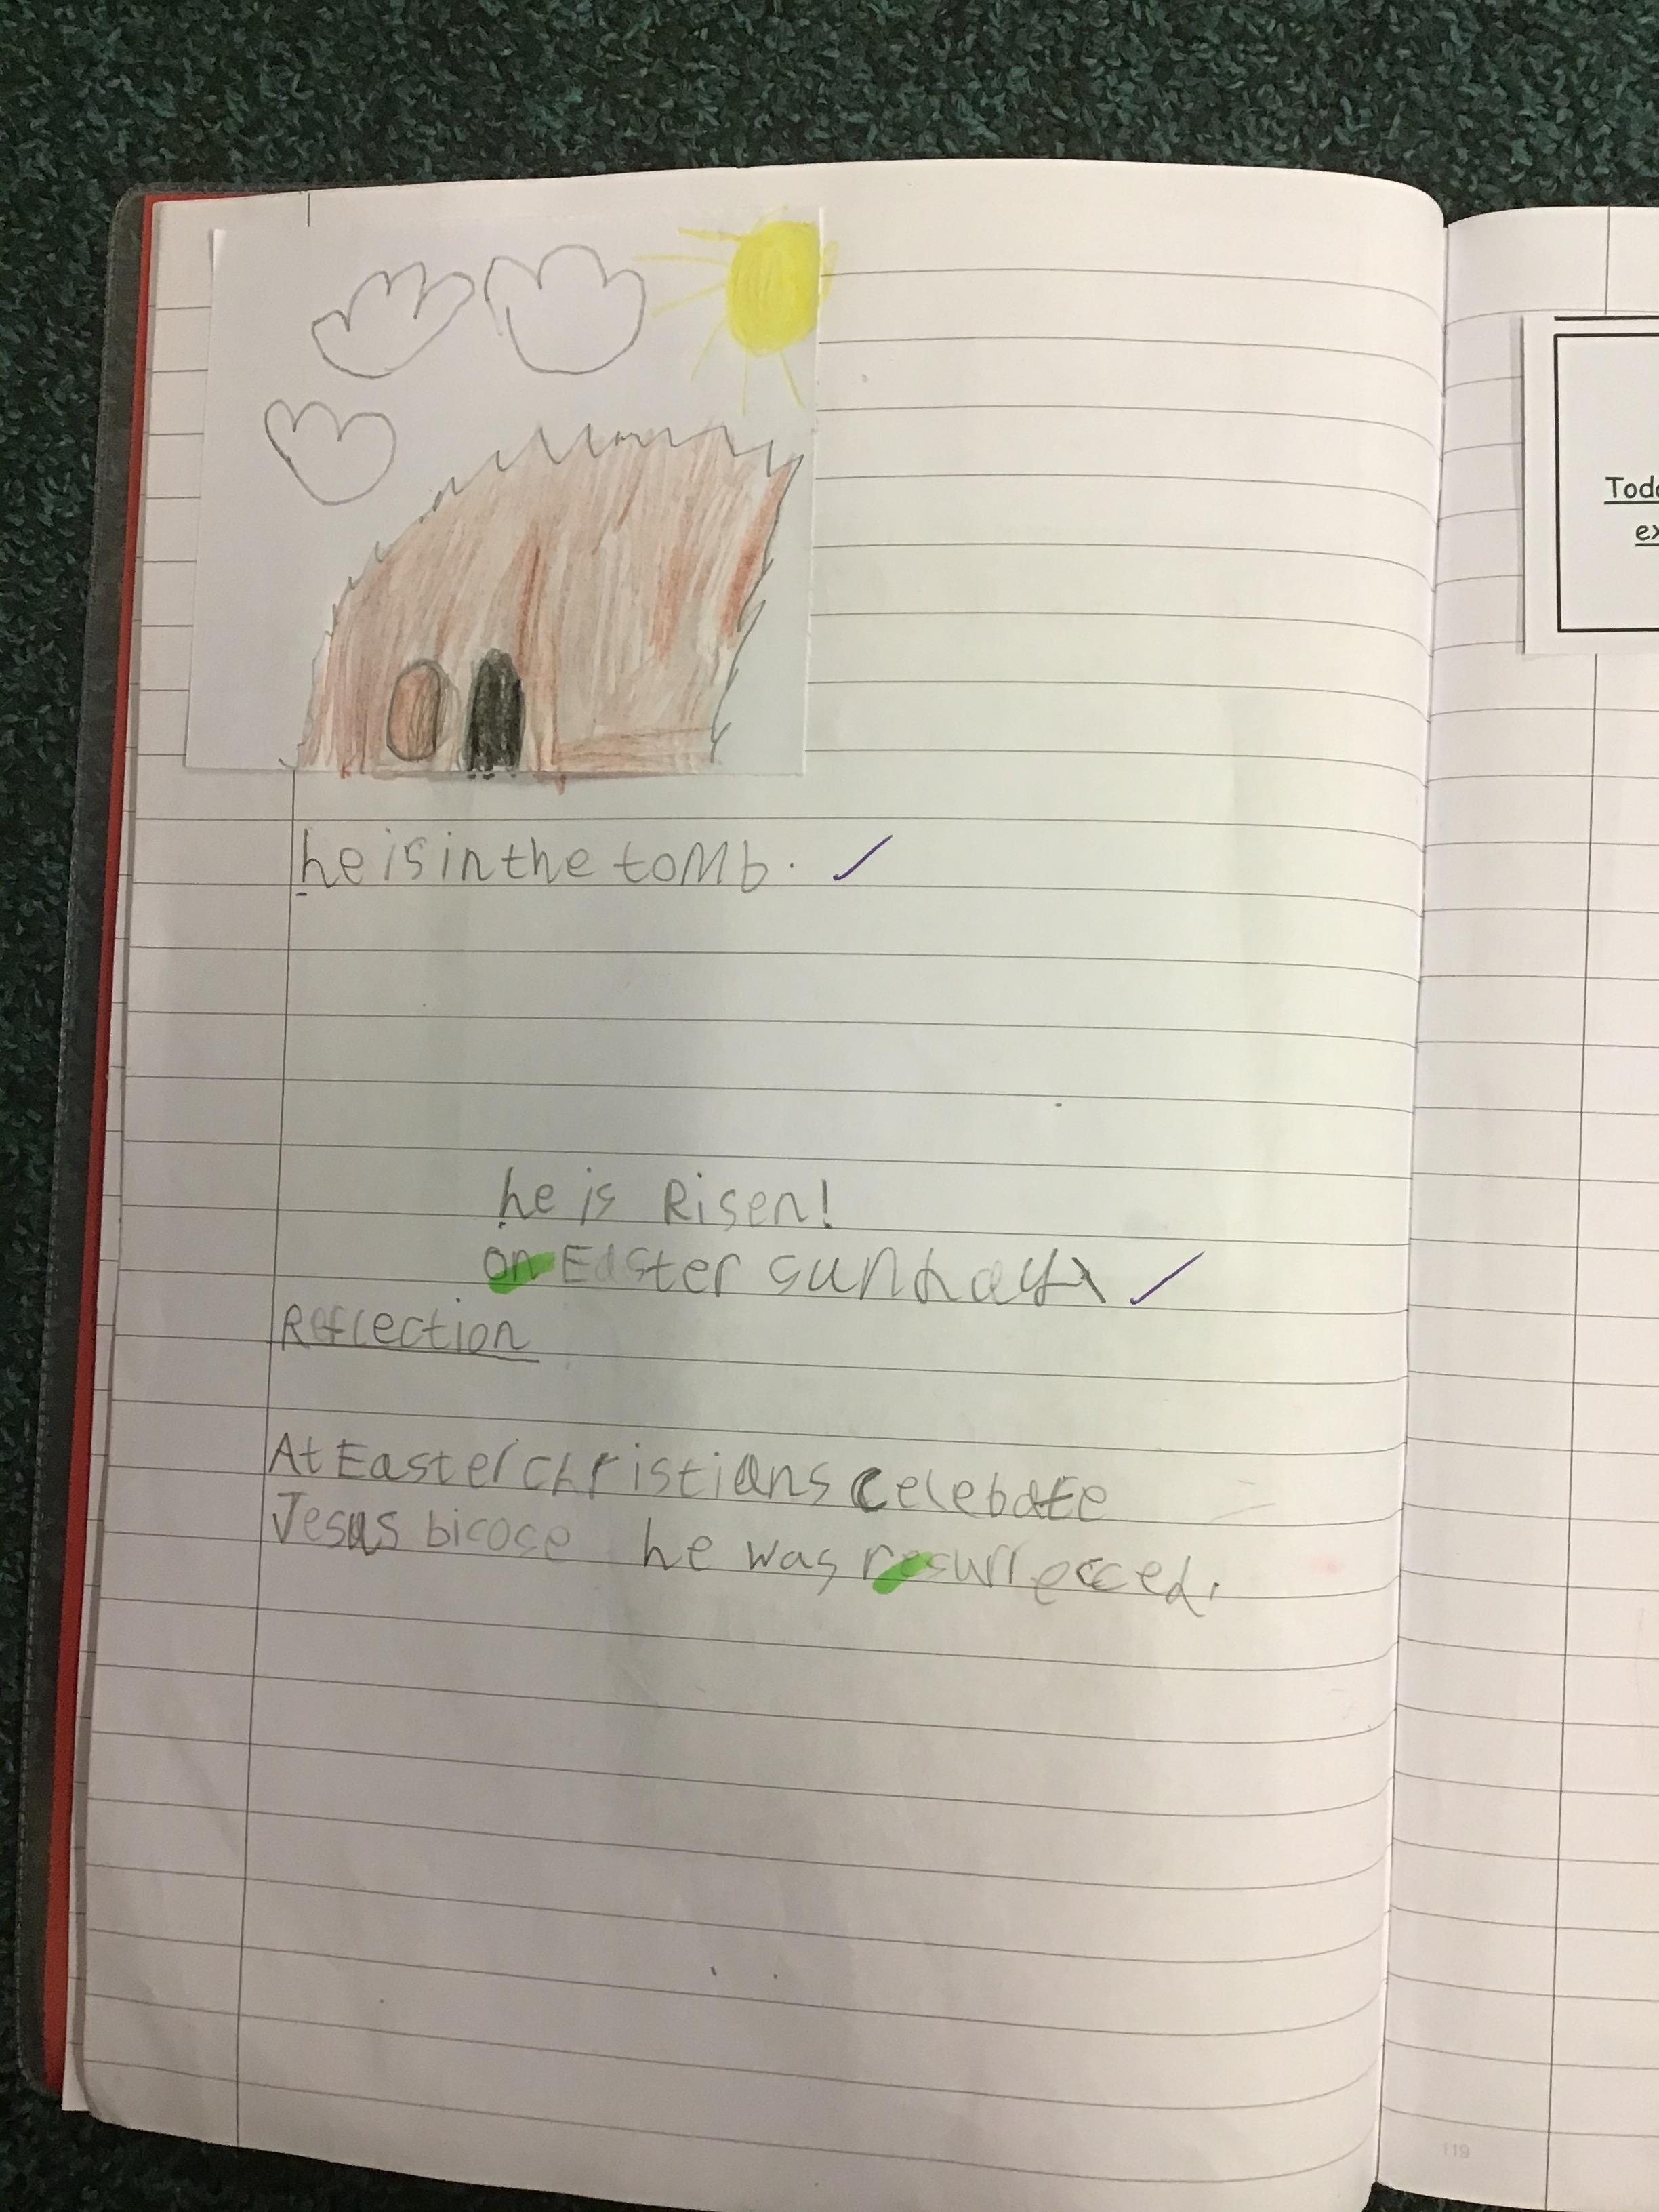 he is in the tomb.
he is Risen!
on Easter sunday
Reflection
At Easter christians celebate
Jesus bicose he was resurrecced.
Toda
ex
119